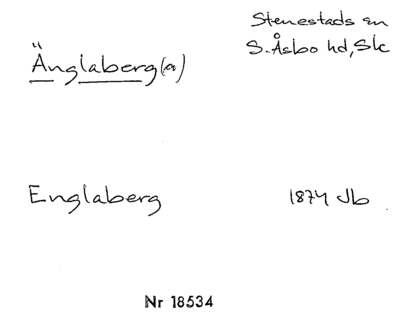 Stenestads sn
Änglaberg(a)
S. Åsbo hd, Sk
Englaberg
1874 Jb
Nr 18534